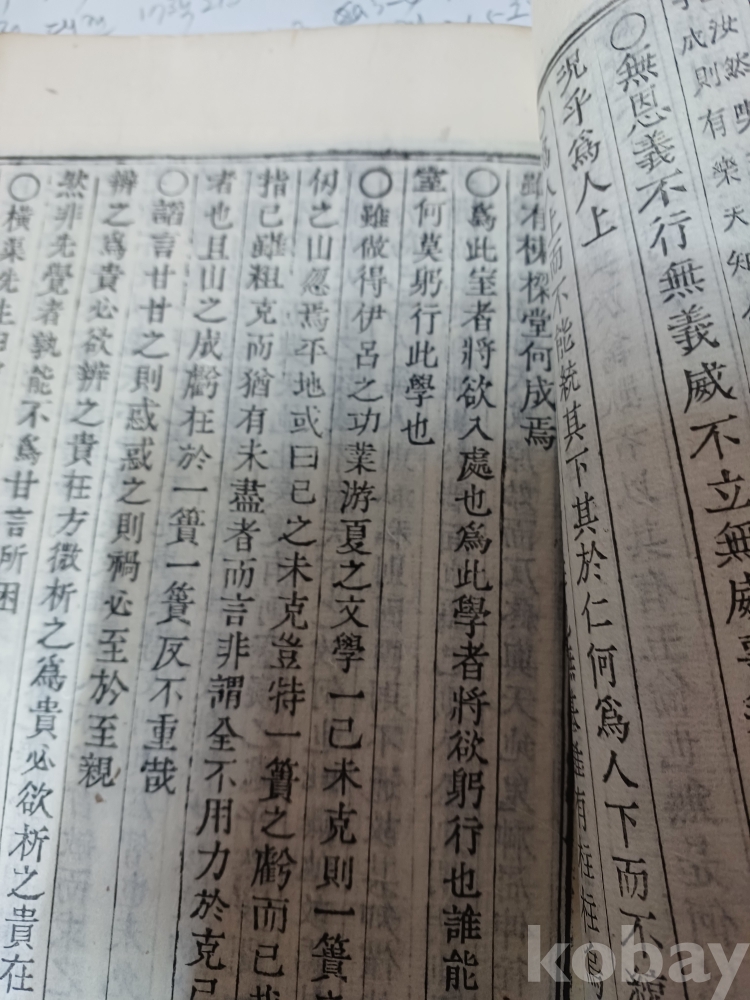 汝然
成則有樂天知
○無恩義不行無義威不立無威
況乎爲人上
爲人上而不能統其下其於仁何爲人下而不
雖有棟樑堂何成焉
○爲此室者將欲入處也爲此學者將欲躬行也誰能
室何莫躬行此學也
○雖做得伊呂之功業游夏之文學一己未克則一簣之
仞之山忽焉平地或曰己之未克豈特一簣之虧而已
指己雖粗克而猶有未盡者而言非謂全不用力於克己
者也且山之成虧在於一簣一簣反不重哉
○諂言甘甘之則惑惑之則禍必至於至親
辨之爲貴必欲辨之貴在方微析之爲貴必欲析之貴在
然非先覺者孰能不爲甘言所困
○橫渠先生曰
kobay